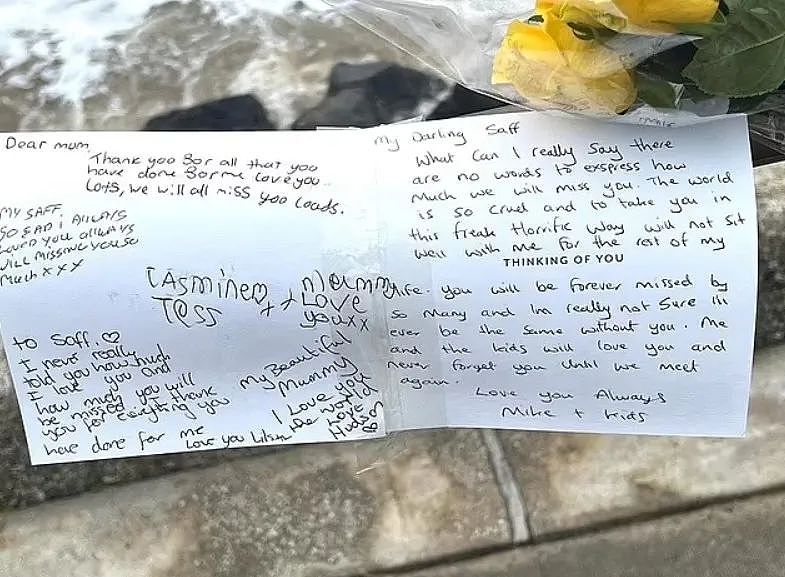 Dear mum
Thank you for all that you
have done for me love you
Lots, we will all miss you Loads.
MY SAFF.
SO SAD I AllWAYS
LOVED YOU AllWAYS
WILL MISSING YOU SO
MUCH xxx
Tess xx
Love
you xx
to Saff, ♡
I never really
told you how much
I love you and
how much you will
be missed. I thank
you for everything you
have done for me
Love you
my Beautiful
Mummy
I Love you
the world
Love
Hudson
My Darling Saff
What Can I really Say there
are no words to exspress how
Much we will miss you. The world
is so cruel and to take you in
this freak Horrific Way will not sit
well with me for the rest of my
THINKING OF YOU
life. you will be forever missed by
so Many and Im really not Sure ill
ever be the same without you. Me
and the kids will love you and
never forget you Until we meet
again.
Love you Always
Mike + kids